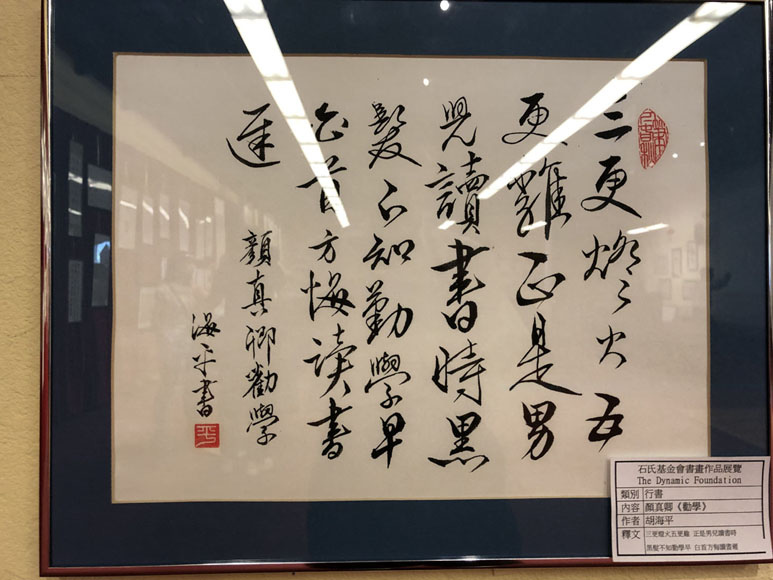 三更燈火五
更雞正是男
兒讀書時黑
髮不知勤學早
白首方悔讀書
遲
顏真卿勸學
海平書
石氏基金會書畫作品展覽
The Dynamic Foundation
類別 行書
內容 顏真卿《勸學》
作者 胡海平
釋文 三更燈火五更雞 正是男兒讀書時
黑髮不知勤學早 白首方悔讀書遲